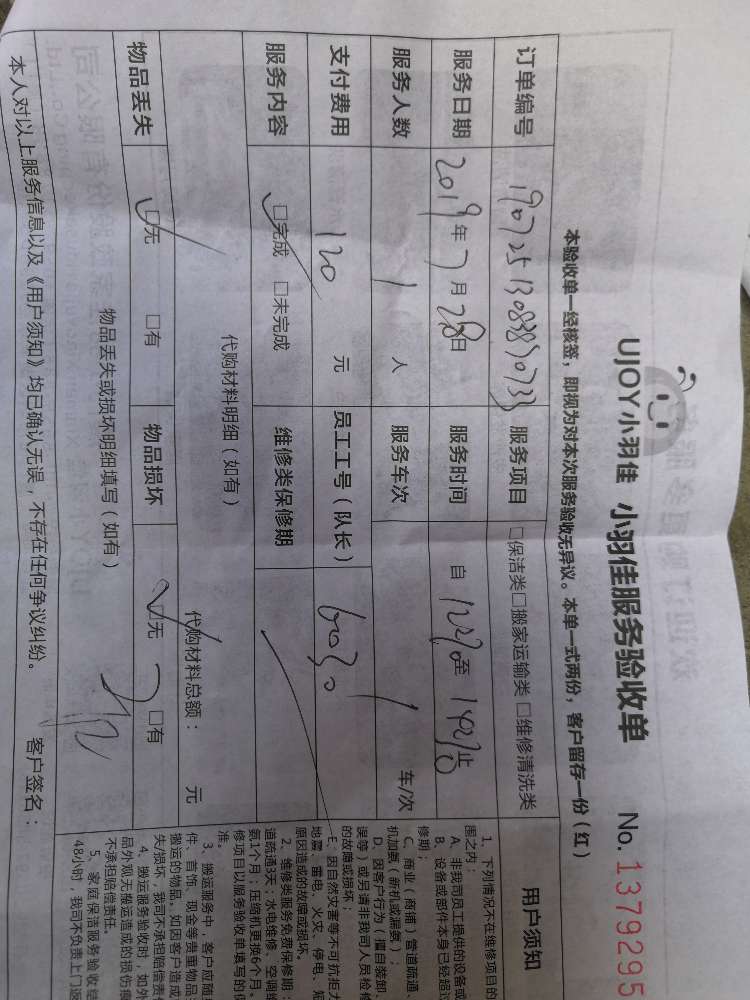 UJOY小羽佳 小羽佳服务验收单 No. 1379295
本验收单一经核签，即视为对本次服务验收无异议。本单一式两份，客户留存一份（红）
订单编号 服务项目 □保洁类□搬家运输类 □维修清洗类
服务日期 2019年7月28日 服务时间 自 至 止
服务人数 1 人 服务车次 1 车/次
支付费用 120 元 员工工号（队长） 6030
服务内容 □完成 □未完成 维修类保修期
代购材料明细（如有） 代购材料总额： 元
物品丢失 □无 □有 物品损坏 □无 □有
物品丢失或损坏明细填写（如有）
本人对以上服务信息以及《用户须知》均已确认无误，不存在任何争议纠纷。 客户签名：
用户须知
1、下列情况不在维修项目的
围之内：
A、非我司员工提供的设备或
B、设备或部件本身已经超过
修期；
C、商业（商铺）管道疏通、
机加氨（新机或漏氨）；
D、因客户行为（擅自装卸
误等）或另请非我司人员检修
的故障或损坏；
E、因自然灾害等不可抗拒力
地震、雷电、火灾、停电、
原因造成的故障或损坏。
2、维修类服务免费保修期：
道疏通3天；水电维修、空调维
氨1个月；压缩机更换6个月。
修项目以服务验收单填写的保
准。
3、搬运服务中，客户应随
件、首饰、现金等贵重物品
搬运的物品。如因客户造成
失/损坏，我司不承担赔偿责任
4、搬运服务验收时，如外
品外观无搬运造成的损伤痕
不承担赔偿责任。
5、家庭保洁服务验收结
48小时，我司不负责上门返